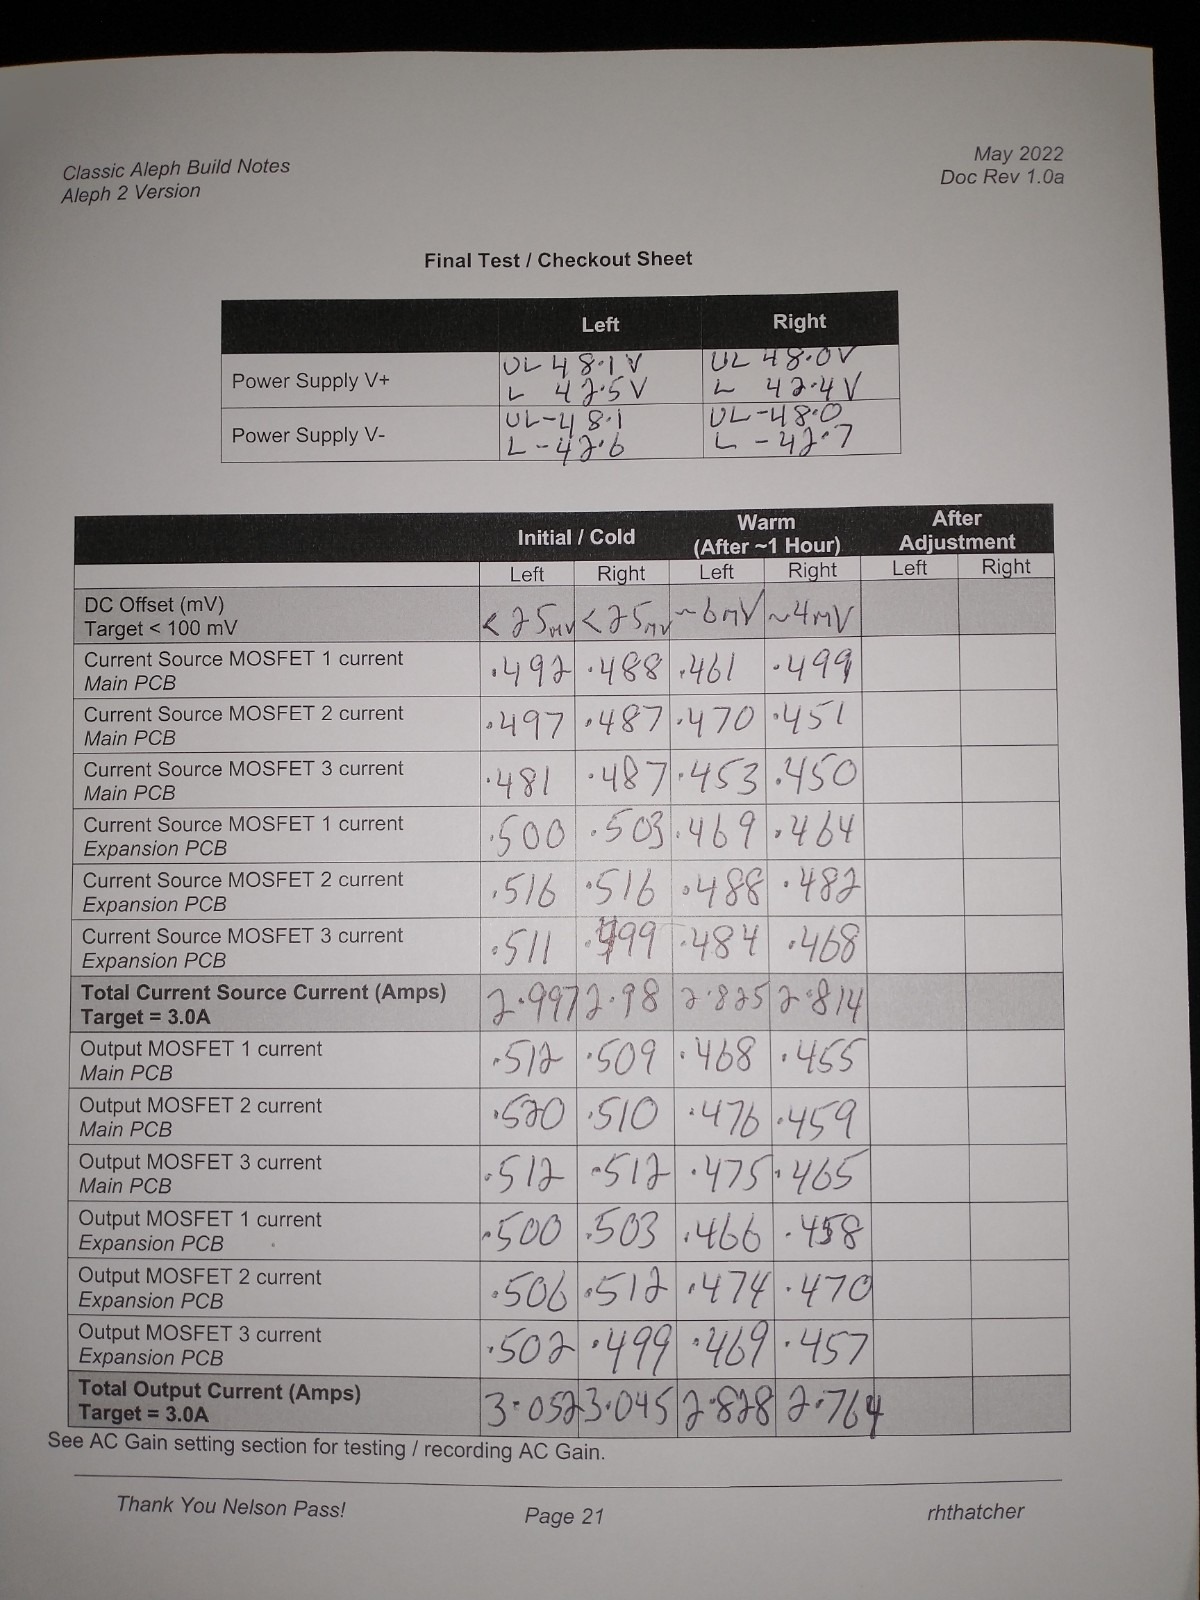 Classic Aleph Build Notes
Aleph 2 Version
May 2022
Doc Rev 1.0a
Final Test / Checkout Sheet
Left Right
Power Supply V+ UL 48.1V UL 48.0V
L 42.5V L 42.4V
Power Supply V- UL-48.1 UL-48.0
L-42.6 L -42.7
Initial / Cold Warm (After ~1 Hour) After Adjustment
Left Right Left Right Left Right
DC Offset (mV)
Target < 100 mV
<25mV <25mV ~6mV ~4mV
Current Source MOSFET 1 current
Main PCB
.492 .488 .461 .499
Current Source MOSFET 2 current
Main PCB
.497 .487 .470 .451
Current Source MOSFET 3 current
Main PCB
.481 .487 .453 .450
Current Source MOSFET 1 current
Expansion PCB
.500 .503 .469 .464
Current Source MOSFET 2 current
Expansion PCB
.516 .516 .488 .482
Current Source MOSFET 3 current
Expansion PCB
.511 .499 .484 .468
Total Current Source Current (Amps)
Target = 3.0A
2.997 2.98 2.825 2.814
Output MOSFET 1 current
Main PCB
.512 .509 .468 .455
Output MOSFET 2 current
Main PCB
.520 .510 .476 .459
Output MOSFET 3 current
Main PCB
.512 .512 .475 .465
Output MOSFET 1 current
Expansion PCB
.500 .503 .466 .458
Output MOSFET 2 current
Expansion PCB
.506 .512 .474 .470
Output MOSFET 3 current
Expansion PCB
.502 .499 .469 .457
Total Output Current (Amps)
Target = 3.0A
3.052 3.045 2.828 2.764
See AC Gain setting section for testing / recording AC Gain.
Thank You Nelson Pass!
Page 21
rhthatcher